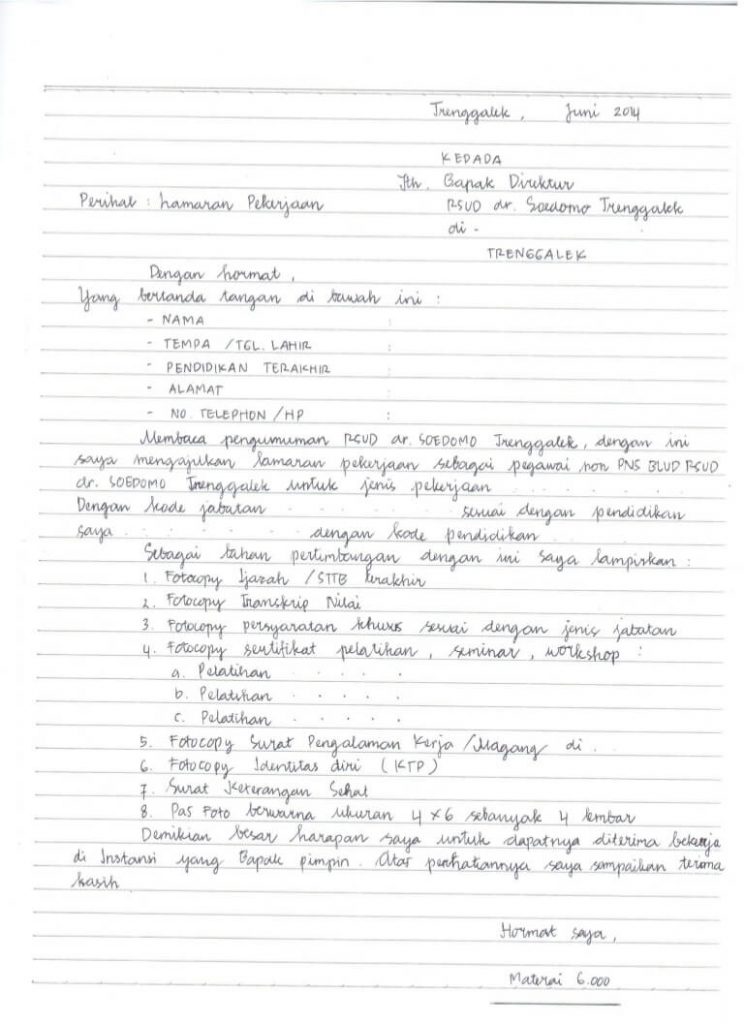 Trenggalek, Juni 2014
KEPADA
Yth. Bapak Direktur
Perihal : Lamaran Pekerjaan RSUD dr. Soedomo Trenggalek
di -
TRENGGALEK
Dengan hormat,
Yang bertanda tangan di bawah ini :
- NAMA :
- TEMPA /TGL. LAHIR :
- PENDIDIKAN TERAKHIR :
- ALAMAT :
- NO. TELEPHON /HP :
Membaca pengumuman RSUD dr. SOEDOMO Trenggalek, dengan ini
saya mengajukan lamaran pekerjaan sebagai pegawai non PNS BLUD RSUD
dr. SOEDOMO Trenggalek untuk jenis pekerjaan . . . . . . . .
Dengan kode jabatan . . . . . . . . sesuai dengan pendidikan
saya . . . . . . . . dengan kode pendidikan . . . .
Sebagai bahan pertimbangan dengan ini saya lampirkan :
1. Fotocopy Ijazah /STTB terakhir
2. Fotocopy Transkrip Nilai
3. Fotocopy persyaratan khusus sesuai dengan jenis jabatan
4. Fotocopy sertifikat pelatihan, seminar, workshop :
a. Pelatihan . . . . .
b. Pelatihan . . . . .
c. Pelatihan . . . . .
5. Fotocopy Surat Pengalaman Kerja /Magang di . .
6. Fotocopy Identitas diri (KTP)
7. Surat Keterangan Sehat
8. Pas Foto berwarna ukuran 4x6 sebanyak 4 lembar
Demikian besar harapan saya untuk dapatnya diterima bekerja
di Instansi yang Bapak pimpin. Atas perhatiannya saya sampaikan terima
kasih
Hormat saya,
Materai 6.000